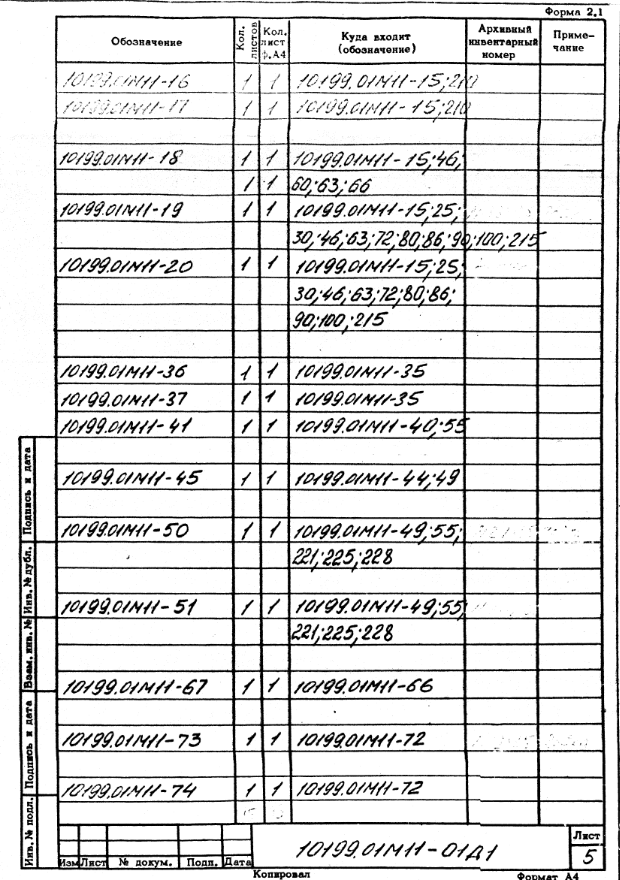 Форма 2.1
Обозначение Кол. листов Кол. лист ф.А4 Куда входит (обозначение) Архивный инвентарный номер Приме-чание
10199.01М11-16 1 1 10199.01М11-15;210
10199.01М11-17 1 1 10199.01М11-15;210
10199.01М11-18 1 1 10199.01М11-15;46;
1 1 60;63;66
10199.01М11-19 1 1 10199.01М11-15;25;
30;46;63;72;80;86;90;100;215
10199.01М11-20 1 1 10199.01М11-15;25;
30;46;63;72;80;86;
90;100;215
10199.01М11-36 1 1 10199.01М11-35
10199.01М11-37 1 1 10199.01М11-35
10199.01М11-41 1 1 10199.01М11-40;55
10199.01М11-45 1 1 10199.01М11-44;49
10199.01М11-50 1 1 10199.01М11-49;55;
221;225;228
10199.01М11-51 1 1 10199.01М11-49;55
221;225;228
10199.01М11-67 1 1 10199.01М11-66
10199.01М11-73 1 1 10199.01М11-72
10199.01М11-74 1 1 10199.01М11-72
Подпись и дата
Инв. № дубл.
Взам. инв. №
Подпись и дата
Инв. № подл.
Изм Лист № докум. Подп. Дата
10199.01М11-01Д1
Лист
5
Копировал Формат А4